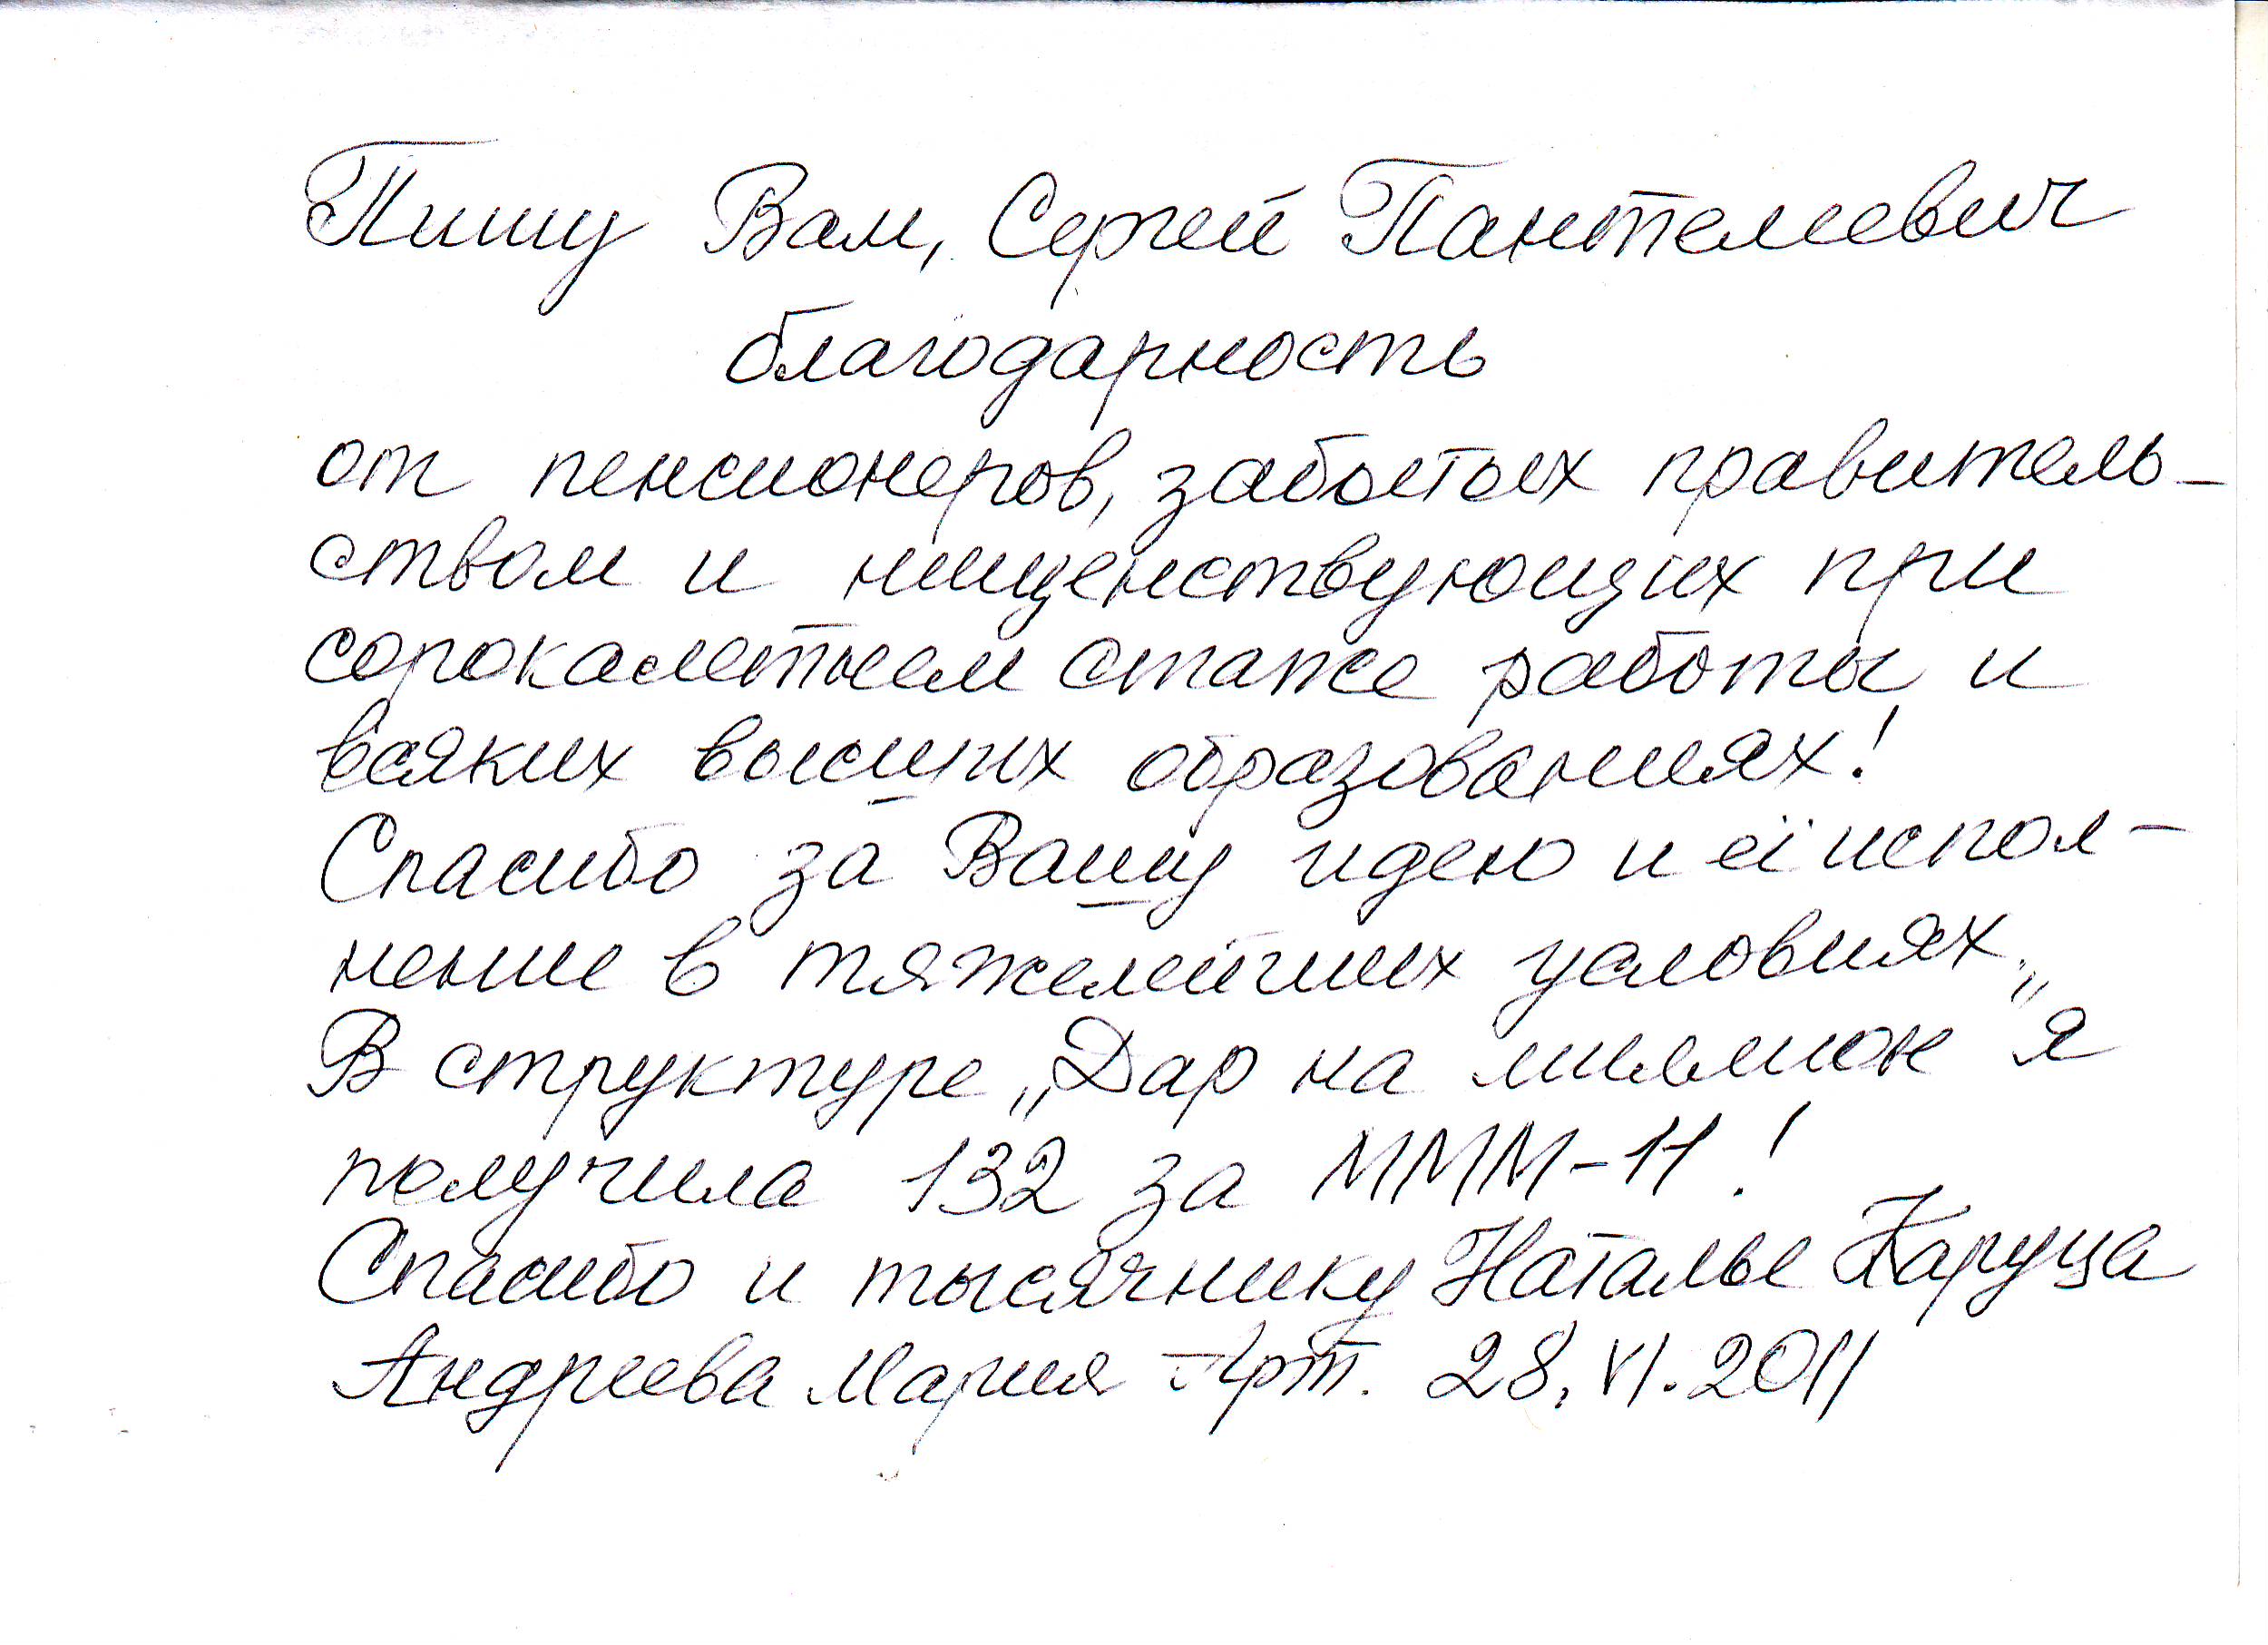 Пишу Вам, Сергей Пантелеевич
благодарность
от пенсионеров, забытых правитель-
ством и нищенствующих при
сорокалетнем стаже работы и
всяких высших образованиях!
Спасибо за Вашу идею и её испол-
нение в тяжелейших условиях.
В структуре „Дар на миллион" я
получила 132 за МММ-11!
Спасибо и тысячнику Наталье Каруца
Андреева Мария Арт. 28.VI.2011